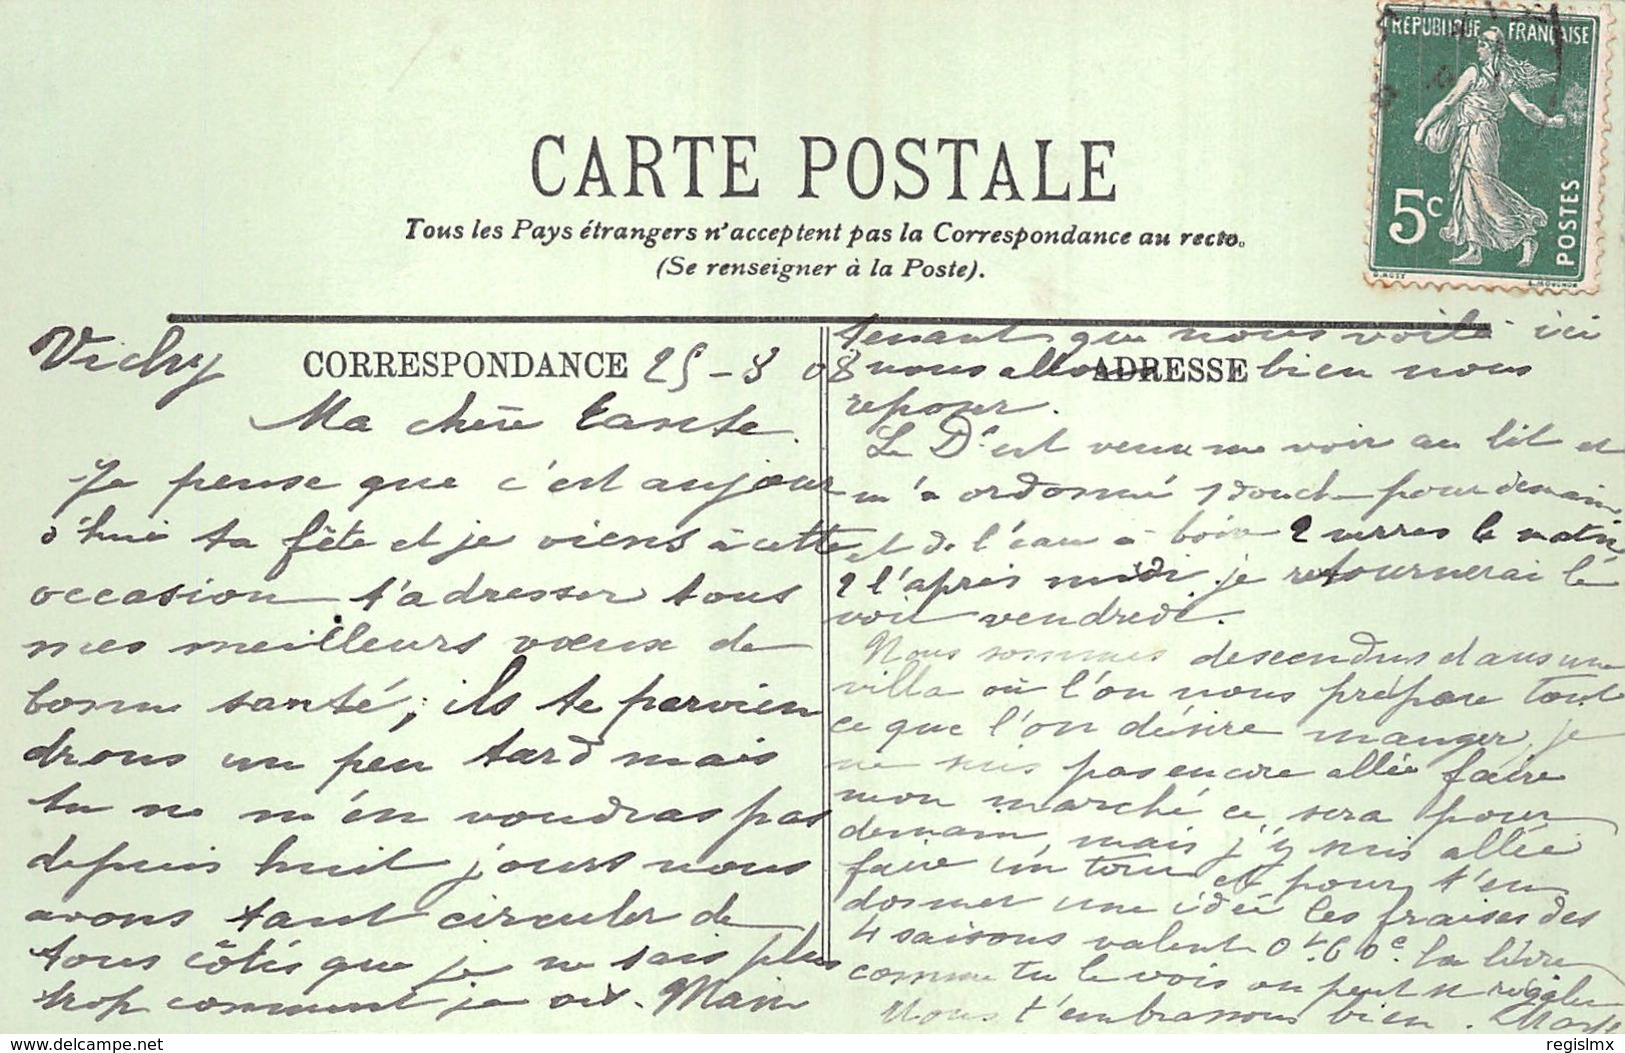 RÉPUBLIQUE FRANÇAISE
5c
POSTES
CARTE POSTALE
Tous les Pays étrangers n'acceptent pas la Correspondance au recto.
(Se renseigner à la Poste).
CORRESPONDANCE
ADRESSE
Vichy 25 - 8 08
Ma chère tante.
Je pense que c'est aujour
d'hui ta fête et je viens à cette
occasion t'adresser tous
mes meilleurs vœux de
bonne santé, ils te parvien
drons un peu tard mais
tu ne m'én voudras pas
depuis huit jours nous
avons tant circuler de
tous côtés que je ne sais plus
trop comment je vis. Main
tenant que nous voilà ici
nous allons bien nous
reposer.
Le Dr est venu me voir au lit et
m'a ordonné 1 douche pour demain
et de l'eau à boire 2 verres le matin
2 l'après midi. je retournerai le
voir vendredi.
Nous sommes descendus dans une
villa où l'on nous prépare tout
ce que l'on désire manger, je
ne suis pas encore allée faire
mon marché ce sera pour
demain, mais j'y suis allée
faire un tour et pour t'en
donner une idée les fraises des
4 saisons valent 0f.60c. la livre
comme tu le vois on peut se régaler
Nous t'embrassons bien.
delcampe.net
regislmx